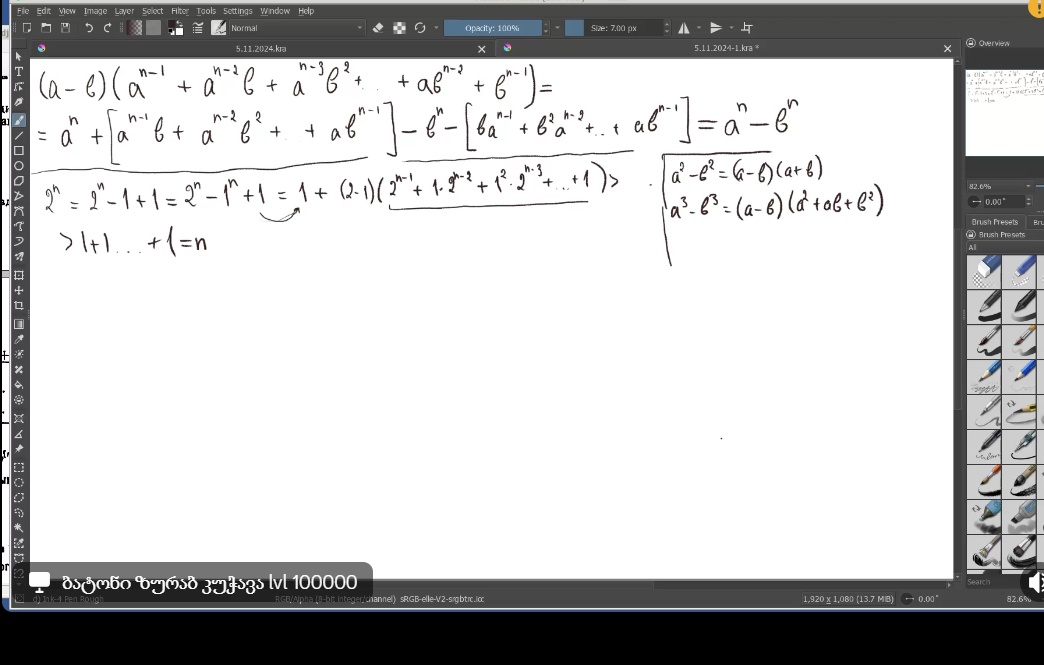 File Edit View Image Layer Select Filter Tools Settings Window Help
Normal Opacity: 100% Size: 7.00 px
5.11.2024.kra 5.11.2024-1.kra *
Overview
(a-b)(a^{n-1} + a^{n-2}b + a^{n-3}b^2 + .. + ab^{n-2} + b^{n-1}) =
= a^n + [a^{n-1}b + a^{n-2}b^2 + .. + ab^{n-1}] - b^n - [ba^{n-1} + b^2a^{n-2} + .. + ab^{n-1}] = a^n - b^n
2^n = 2^n - 1 + 1 = 2^n - 1^n + 1 = 1 + (2-1)(2^{n-1} + 1·2^{n-2} + 1^2·2^{n-3} + ... + 1) >
> 1+1 ... + 1 = n
a^2 - b^2 = (a-b)(a+b)
a^3 - b^3 = (a-b)(a^2 + ab + b^2)
82.6%
0.00°
Brush Presets Bru
Brush Presets
All
Search
ბატონი ზურაბ კუჭავა lvl 100000
d) Ink-4 Pen Rough RGB/Alpha (8-bit integer/channel) sRGB-elle-V2-srgbtrc.icc 1,920 x 1,080 (13.7 MiB) 0.00° 82.6%